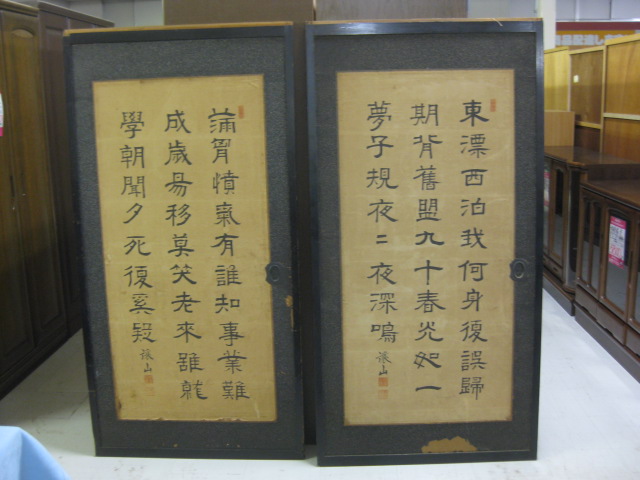 東漂西泊我何身復誤歸
期背舊盟九十春光如一
夢子規夜〻夜深鳴
滿胷憤氣有誰知事業難
成歲易移莫笑老來雖就
學朝聞夕死復奚疑